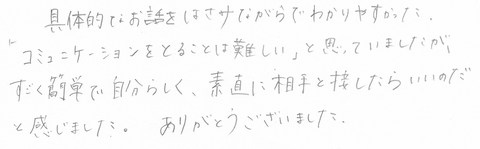 具体的なお話をはさみながらでわかりやすかった.
「コミュニケーションをとることは難しい」と思っていましたが、
すごく簡単で自分らしく、素直に相手と接したらいいのだ
と感じました。 ありがとうございました.